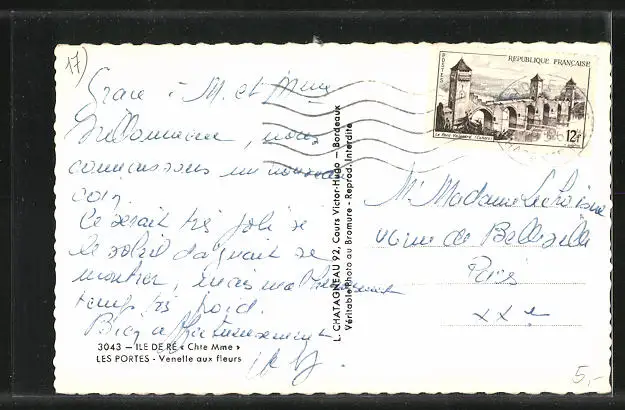 17)
Grace à M. et Mme
nous
connaissons un nouveau
coin.
Ce serait très joli si
le soleil daignait se
montrer, mais malheureusement
temps très froid.
Bien affectueusement
3043 — ILE DE RÉ « Chte Mme »
LES PORTES - Venelle aux fleurs
L. CHATAGNEAU 92, Cours Victor-Hugo — Bordeaux
Véritable Photo au Bromure - Reprod. Interdite
POSTES
REPUBLIQUE FRANÇAISE
Le Pont Valentré (Cahors)
12F
Mr Madame
rue de Belleville
Paris
XX e
5,-